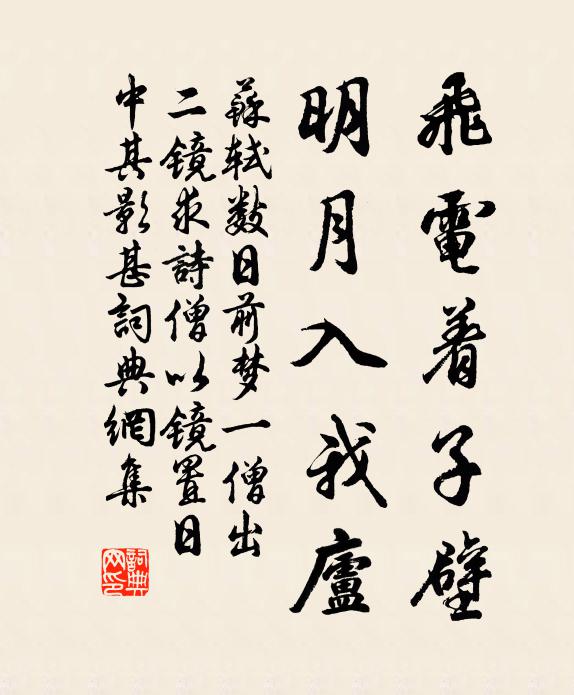 飛電着子壁
明月入我廬
蘇軾数日前梦一僧出
二镜求詩僧以镜置日
中其影甚詞典網集
詞典網印